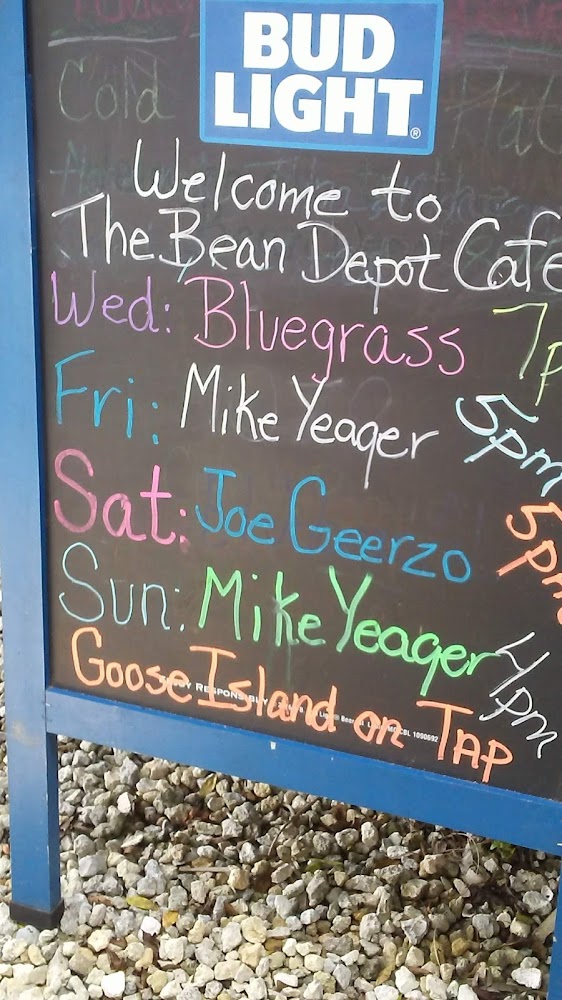 BUD
LIGHT®
Cold
Welcome to
The Bean Depot Cafe
Wed: Bluegrass 7p
Fri: Mike Yeager 5pm
Sat: Joe Geerzo 5pm
Sun: Mike Yeager 4pm
Goose Island on TAP
RESPONSIBLY